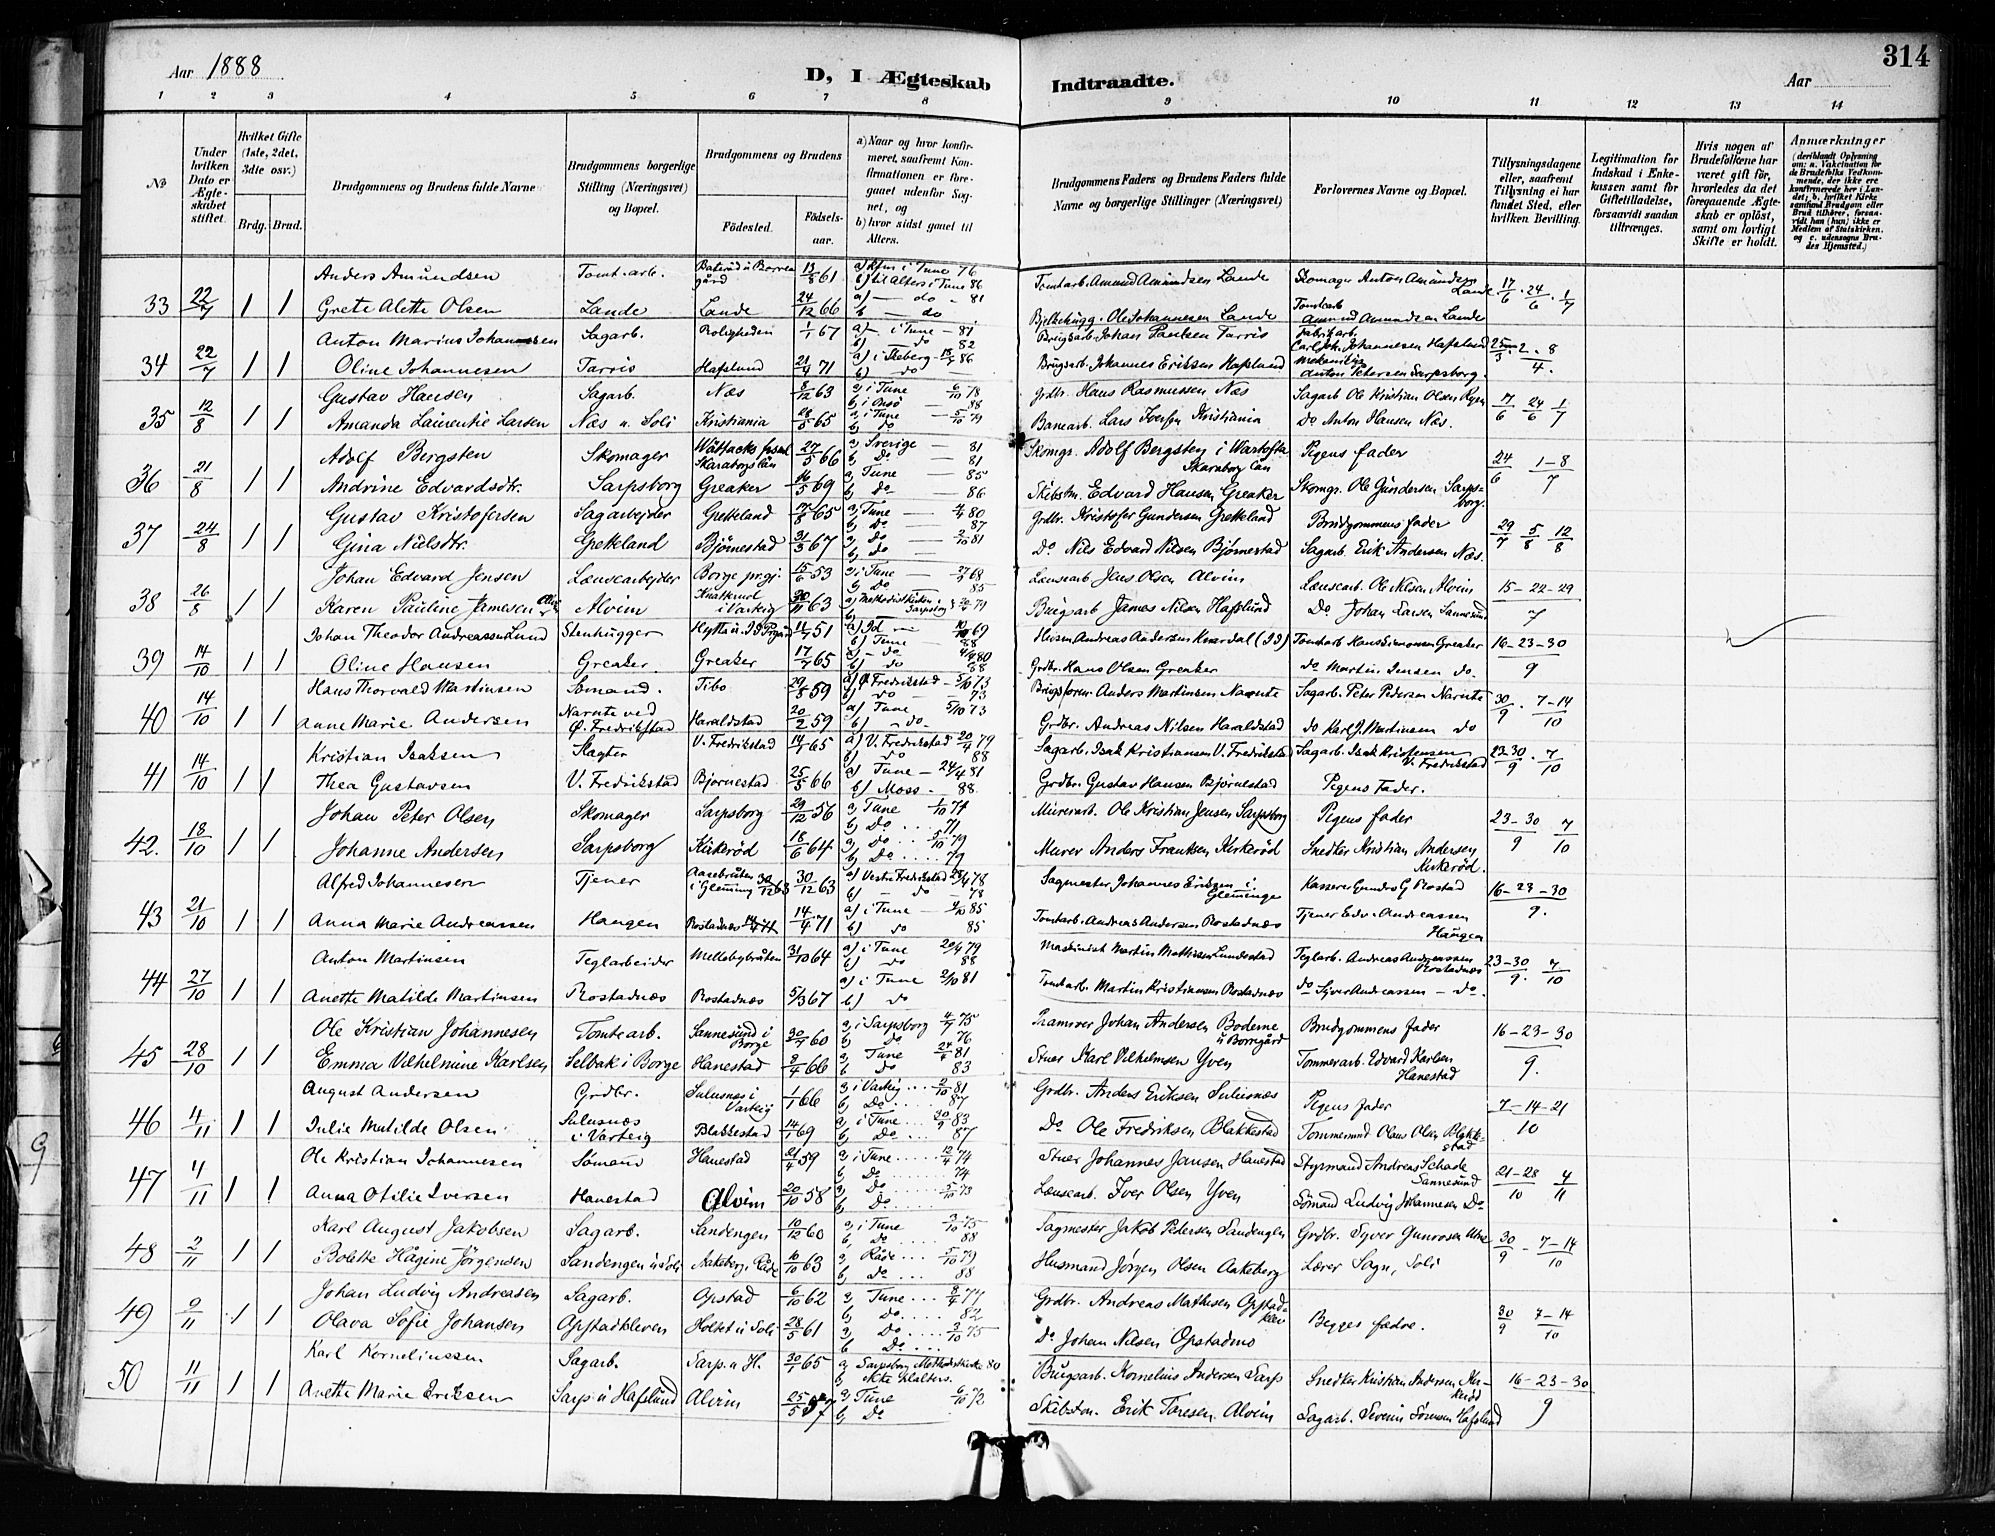 314
Aar 1888
D, I Ægteskab Indtraadte.
Aar
1 2 3 4 5 6 7 8 9 10 11 12 13 14
No
Under hvilken Dato er Ægteskabet stiftet.
Hvilket Gifte (1ste, 2det, 3dte osv.)
Brdg. Brud.
Brudgommens og Brudens fulde Navne
Brudgommens borgerlige Stilling (Næringsvei) og Bopæl.
Brudgommens og Brudens
Födested.
Födsels-aar.
a) Naar og hvor konfirmeret, saafremt Konfirmationen er foregaaet udenfor Sognet, og
b) hvor sidst gaaet til Alters.
Brudgommens Faders og Brudens Faders fulde Navne og borgerlige Stillinger (Næringsvei)
Forlovernes Navne og Bopæl.
Tillysningsdagene eller, saafremt Tillysning ei har fundet Sted, efter hvilken Bevilling.
Legitimation for Indskud i Enkekassen samt for Giftetilladelse, forsaavidt saadan tiltrænges.
Hvis nogen af Brudefolkene har været gift för, hvorledes da det foregaaende Ægteskab er oplöst, samt om lovligt Skifte er holdt.
Anmærkninger
33 22/7 1 1 Anders Amundsen Tomtarb. 13/8 61 a) Kfm i Tune 76 Tomtarb. Amund Amundsen Lande Skomager Anton Amundsen Lande 17/6 . 24/6 . 1/7
b) til Alters i Tune 86
Grete Alette Olsen Lande Lande 24/12 66 a) — do - 81 Bjelkehugg. Ole Johannesen Lande Tomtearb. Amund Amundsen Lande
b — do
34 22/7 1 1 Anton Marius Johannssen Sagarb. Roligheden 1/1 67 a) — i Tune - 81 Brugsarb. Johan Paulsen Tarris Fabrikarb. Carl Joh. Johannesen Hafslund
b) do 82
Oline Johannesen Tarris Hafslund 21/4 71 a) i Skeberg 86 Brugsarb. Johannes Eriksen Hafslund Anton Petersen Sarpsborg.
b) do
35 12/8 1 1 Gustav Hansen Sagarb. Næs 8/12 63 a) i Tune 6/10 78 Grdbr. Hans Rasmussen Næs Sagarb Ole Kristian Olsen 17/6 24/6 1/7
b) i 88
Amanda Laurentie Larsen Næs u. Soli Kristiania 28/5 65 a) i Tune 5/10 79 Banearb. Lars Iversen Kristiania Do Anton Hansen Næs.
b) do
36 21/8 1 1 Adolf Bergsten Skomager Skaraborgs län 27/5 66 a) Sverige — 81 Skomgr. Adolf Bergsten i Wartofta Skaraborg län Pigens fader 24/6 1-8/7
b) Do — 81
Andrine Edvardsdtr. Sarpsborg Greaker 16/5 69 a) Tune — 85 Skibstm. Edvard Hansen Greaker Skomgr. Ole Gundersen Sarpsborg.
b) do — 86
37 24/8 1 1 Gustav Kristofersen Sagarbejder Gretteland 17/8 65 a) Tune — 80 Grdbr. Kristofer Gundersen Gretteland Brudgommens fader 29/7 5/8 12/8
b) Do 87
Gina Nielsdtr. Gretteland Bjørnestad 31/3 67 a) Do — 2/10 81 Do Nils Edvard Nilsen Bjørnestad Sagarb. Erik Andersen Næs.
b) do —
38 26/8 1 1 Johan Edvard Jensen Lænsearbejder Borge prgj. 15/6 53 a) i Tune — 68 Lænsearb Jens Olsen Alvim Lænsearb. Ole Nilsen Alvim 15-22-29/7
b) Do 85
Karen Pauline Jamesen Alvim i Varteig 30/11 63 a) Methodistkirken i Sarpsborg 79 Brugsarb James Nilsen Hafslund Do Johan Larsen Sannesund
39 14/10 1 1 Johan Theodor Andreassen Lund Stenhugger 51 a) Id — 69 Andreas Andersen (Id) Tomtarb Hans Simonsen Greaker 16-23-30/9
b) Tune 88
Oline Hansen Greaker. Greaker 17/7 65 a) — do 80 Grdbr. Hans Olsen Greaker do Martin Jensen do.
b) do 88
40 14/10 1 1 Hans Thorvald Martinsen Sömand. Tibo 29/8 59 a) Ø. Fredrikstad - 5/10 73 Brugsform. Anders Martinsen Narnte Sagarb. Peter Pedersen Narnte 30/9 . 7-14/10
b) do - 73
Anne Marie Andersen Narnte ved Ø. Fredrikstad Haraldstad 20/2 59 a) Tune 5/10 73 Grdbr. Andreas Nilsen Haraldstad do Karl J. Martinsen do
b) - do -
41 14/10 1 1 Kristian Isaksen Slagter V. Fredrikstad 14/1 65 a) V. Fredrikstad 20/9 79 Sagarb. Isak Kristiansen V. Fredrikstad Sagarb. Isak Kristiansen V. Fredrikstad 23-30/9 . 7/10
b) do 88
Thea Gustavsen V. Fredrikstad Bjørnestad 25/5 66 a) Tune - 24/4 81 Grdbr. Gustav Hansen Bjørnestad Pigens Fader.
b) Moss - 88
42. 18/10 1 1 Johan Peter Olsen Skomager Sarpsborg 29/12 56 a) Tune 1/10 74 Murerarb. Ole Kristian Jensen Sarpsborg Pigens fader 23-30/9 7/10
b) Do .... 71
Johanne Andersen Sarpsborg Kirkerød 18/6 64 a) do 5/10 79 Murer Anders Frantsen Kirkerød Snedker Kristian Andersen Kirkerød.
b) Do .... 79
43 21/10 1 1 Alfred Johannesen Tjener Aasebråten i Glemming 30/12 63 30/12 63 a) Vestre Fredrikstad 78 Sagmester Johannes Eriksen i Glemminge Kasserer Gunder G Rostad 16-23-30/9.
b) — do — 78
Anna Marie Andreassen Haugen Rostadnæs 14/4 71 14/4 71 a) i Tune — 85 Tomtarb. Andreas Andersen Rostadnæs Tjener Edv. Andreassen Haugen
b) do 85
44 27/10 1 1 Anton Martinsen Teglarbeider Mellebybråten 31/10 64 a) i Tune 79 Maskinist Martin Mathisen Lundestad Teglarb. Andreas Andreassen Rostadnæs 23-30/9. 7/10
b) do 88
Anette Matilde Martinsen Rostadnæs Rostadnæs 5/3 67 a) i Tune 2/10 81 Tomtarb. Martin Kristiansen Rostadnæs do Syver Andreassen - do.
b) do
45 28/10 1 1 Ole Kristian Johannesen Tomtearb. Sannesund i Borge 30/7 60 a) i Sarpsborg 75 Pramror Johan Andersen Boderne u Borregård Brudgommens fader 16-23-30/9.
b) do 76
Emma Vilhelmine Karlsen Selbak i Borge Hanestad 8/4 66 a) Tune 81 Stuer Karl Vilhelmsen Yven Tømmerarb. Edvard Karlsen Hanestad
b) do 83
46 4/11 1 1 August Andersen Grdbr. Sulusnæs i Varteig 1/1 66 a) i Varteig ... 2/10 81 Grdbr. Anders Eriksen Sulusnæs Pigens fader 7-14-21/10
b) Do .... 87
Julie Matilde Olsen Sulusnæs i Varteig Blakkestad 14/1 69 a) i Tune ... 30/9 83 Do Ole Fredriksen Blakkestad Tømmermd Olaus Olsen Blakkestad
b) Do ... 87
47 4/11 1 1 Ole Kristian Johannesen Sømand Hanestad 21/4 59 a) i Tune ..... 12/4 74 Stuer Johannes Jansen Hanestad Styrmand Andreas Schade Sannesund 21-28/10 4/11
b) Do ...... 74
Anna Otilie Iversen Hanestad Alvim 20/10 58 a) Do ...... 5/10 73 Lænsearb. Iver Olsen Yven Sömand Ludvig Johannesen Do
b) Do ......
48 2/11 1 1 Karl August Jakobsen Sagarb. Sandengen 10/12 60 a) i Tune 3/10 75 Sagmester Jakob Pedersen Sandengen Grdbr. Syver Gunrosen 30/9 - 7-14/10
b) Do .... 88
Bolette Hågine Jörgensen Sandengen u Soli Aakeberg, Råde 10/10 63 a) Råde ... 5/10 79 Husmand Jørgen Olsen Aakeberg Lærer Sagn, Soli
b) Do .... 88
49 9/11 1 1 Johan Ludvig Andreasen Sagarb. Opstad 6/10 62 a) Tune ... 77 Grdbr. Andreas Mathisen Opstadklev Begges fædre. 30/9 7-14/10
b) Do .... 82
Olava Sofie Johansen Opstadkleven Holtet u Soli 28/5 61 a) Do .... 3/10 75 Do Johan Nilsen Opstadmo
b) Do ....
50 11/11 1 1 Karl Korneliussen Sagarb. Sarp. u H. 30/1 65 a) Sarpsborg Methodistkirke 80 Brugsarb. Kornelius Andersen Sarp Snedker Kristian Andersen Kirkerød 16-23-30/9
b) Ikke til alters.
Anette Marie Eriksen Sarp u Hafslund Alvim 25/5 57 a) Tune 6/10 72 Skibstm. Erik Toresen Alvim Sagarb. Severin Sörensen Hafslund
b) Do